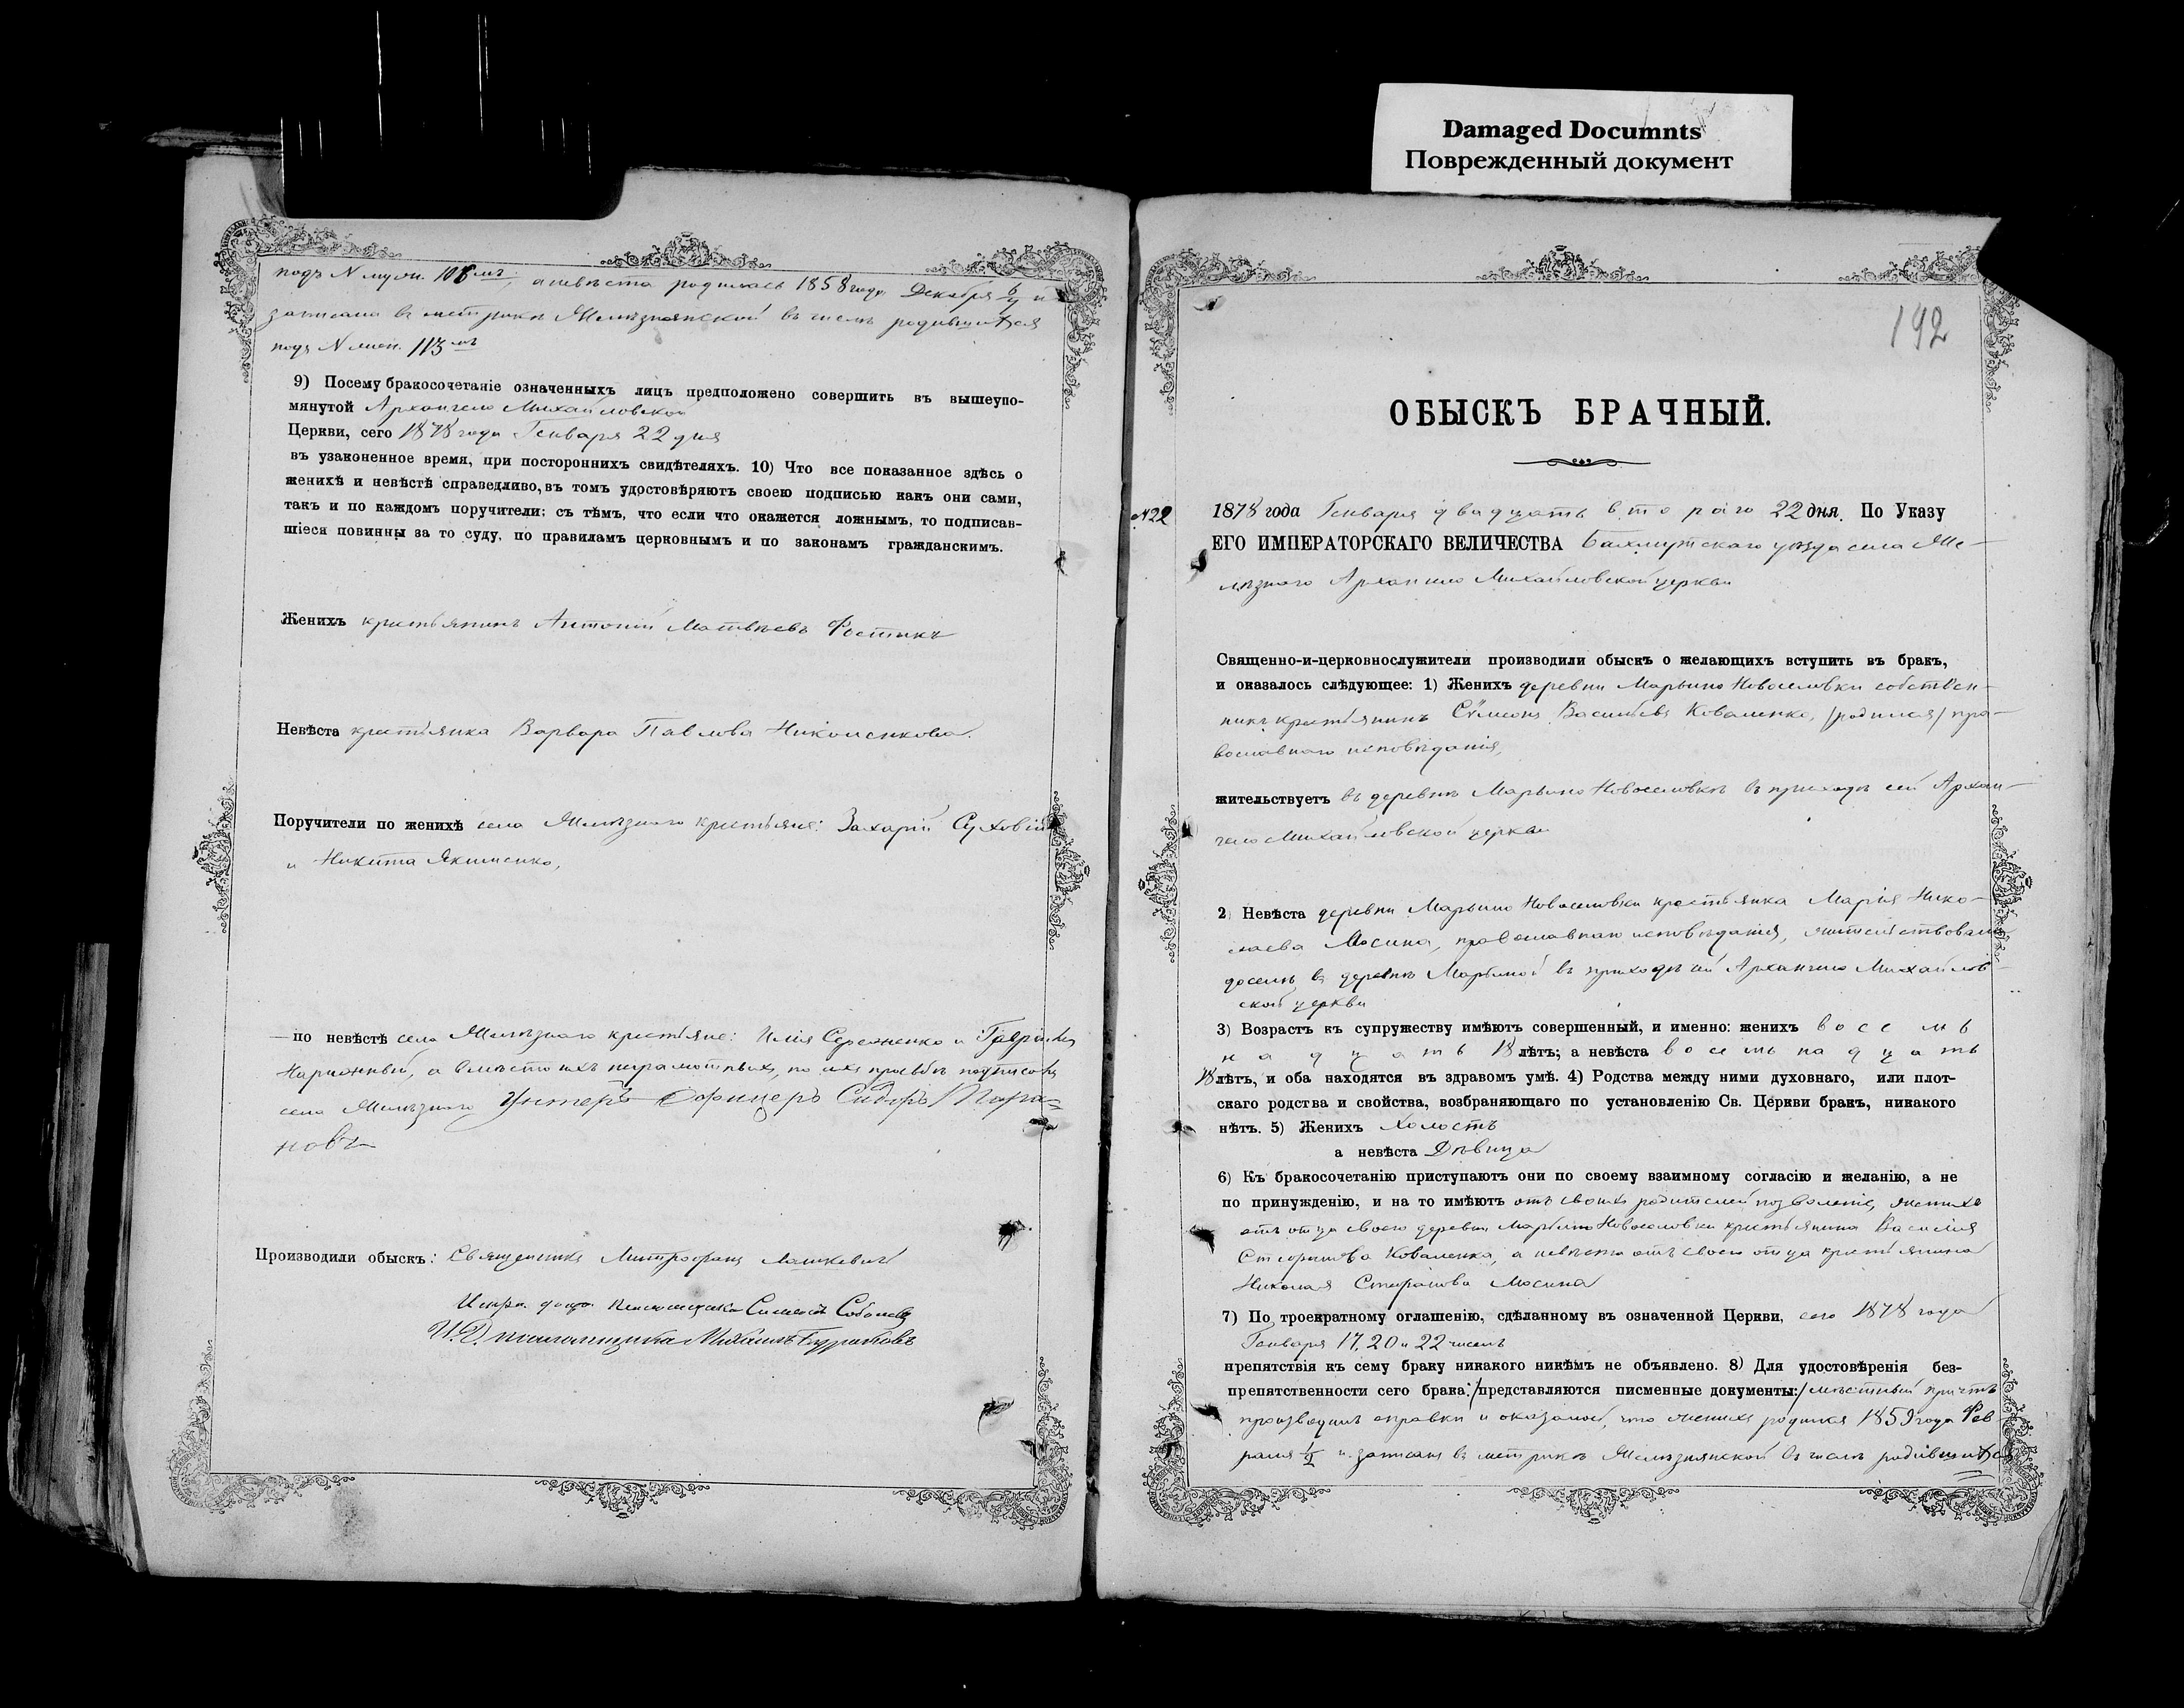 Damaged Documnts
Поврежденный документ
подъ N муж. 108мъ, а невѣста родилась 1858 года Декабря и
записана въ метрикѣ Желѣзнянской въ числѣ родившихся
подъ N жен. 113мъ
9) Посему бракосочетаніе означенныхъ лицъ предположено совершить въ вышеупо-
мянутой Архангело Михайловской
Церкви, сего 1878 года Генваря 22 дня
въ узаконенное время, при постороннихъ свидѣтеляхъ. 10) Что все показанное здѣсь о
женихѣ и невѣстѣ справедливо, въ томъ удостовѣряютъ своею подписью какъ они сами,
такъ и по каждомъ поручители; съ тѣмъ, что если что окажется ложнымъ, то подписав-
шіеся повинны за то суду, по правиламъ церковнымъ и по законамъ гражданскимъ.
Женихъ крестьянинъ Антоній Матвѣевъ Фостикъ
Невѣста крестьянка Варвара Павлова
Поручители по женихѣ села Желѣзнаго крестьяне: Захарій Суховій
и Никита Якименко,
— по невѣстѣ села Желѣзнаго крестьяне: Илія и Гавріилъ
Нарижный, а вмѣсто ихъ неграмотныхъ, по ихъ просьбѣ подписалъ
села Желѣзнаго Унтеръ Офицеръ
новъ
Производили обыскъ: Священникъ Митрофанъ
Испр. долж. псаломщика Симеонъ Соболевъ
И. Д. псаломщика Михаилъ
192
ОБЫСКЪ БРАЧНЫЙ.
N22 1878 года Генваря двадцать втораго 22 дня. По Указу
ЕГО ИМПЕРАТОРСКАГО ВЕЛИЧЕСТВА Бахмутскаго уѣзда села Же-
лѣзнаго Архангело Михайловской церкви
Священно-и-церковнослужители производили обыскъ о желающихъ вступить въ бракъ,
и оказалось слѣдующее: 1) Женихъ деревни Марьино Новоселовки собствен-
никъ крестьянинъ Сѵмеонъ Васильевъ Коваленко, /родился/ пра-
вославнаго исповѣданія,
жительствуетъ въ деревнѣ Марьино Новоселовкѣ въ приходѣ сей Архан-
гело Михайловской церкви
2) Невѣста деревни Марьино Новоселовки крестьянка Марія Нико-
лаева Мосина, православнаго исповѣданія, жительствовала
доселѣ въ деревнѣ Марьиной въ приходѣ сей Архангело Михайлов-
ской церкви
3) Возрастъ къ супружеству имѣютъ совершенный, и именно: женихъ восемь
надцать 18 лѣтъ; а невѣста восемьнадцать
18 лѣтъ, и оба находятся въ здравомъ умѣ. 4) Родства между ними духовнаго, или плот-
скаго родства и свойства, возбраняющаго по установленію Св. Церкви бракъ, никакого
нѣтъ. 5) Женихъ холостъ
а невѣста Дѣвица
6) Къ бракосочетанію приступаютъ они по своему взаимному согласію и желанію, а не
по принужденію, и на то имѣютъ отъ своихъ родителей позволеніе, женихъ
отъ отца своего деревни Марьино Новоселовки крестьянина Василія
Коваленка, а невѣста отъ своего отца крестьянина
Николая Стефанова Мосина
7) По троекратному оглашенію, сдѣланному въ означенной Церкви, сего 1878 года
Генваря 17, 20 и 22 числъ
препятствія къ сему браку никакого никѣмъ не объявлено. 8) Для удостовѣренія без-
препятственности сего брака: /представляются писменные документы:/ мѣстный причтъ
производилъ справки и оказалось, что женихъ родился 1859 года Фев-
раля и записанъ въ метрикѣ Желѣзнянской въ числѣ родившихся